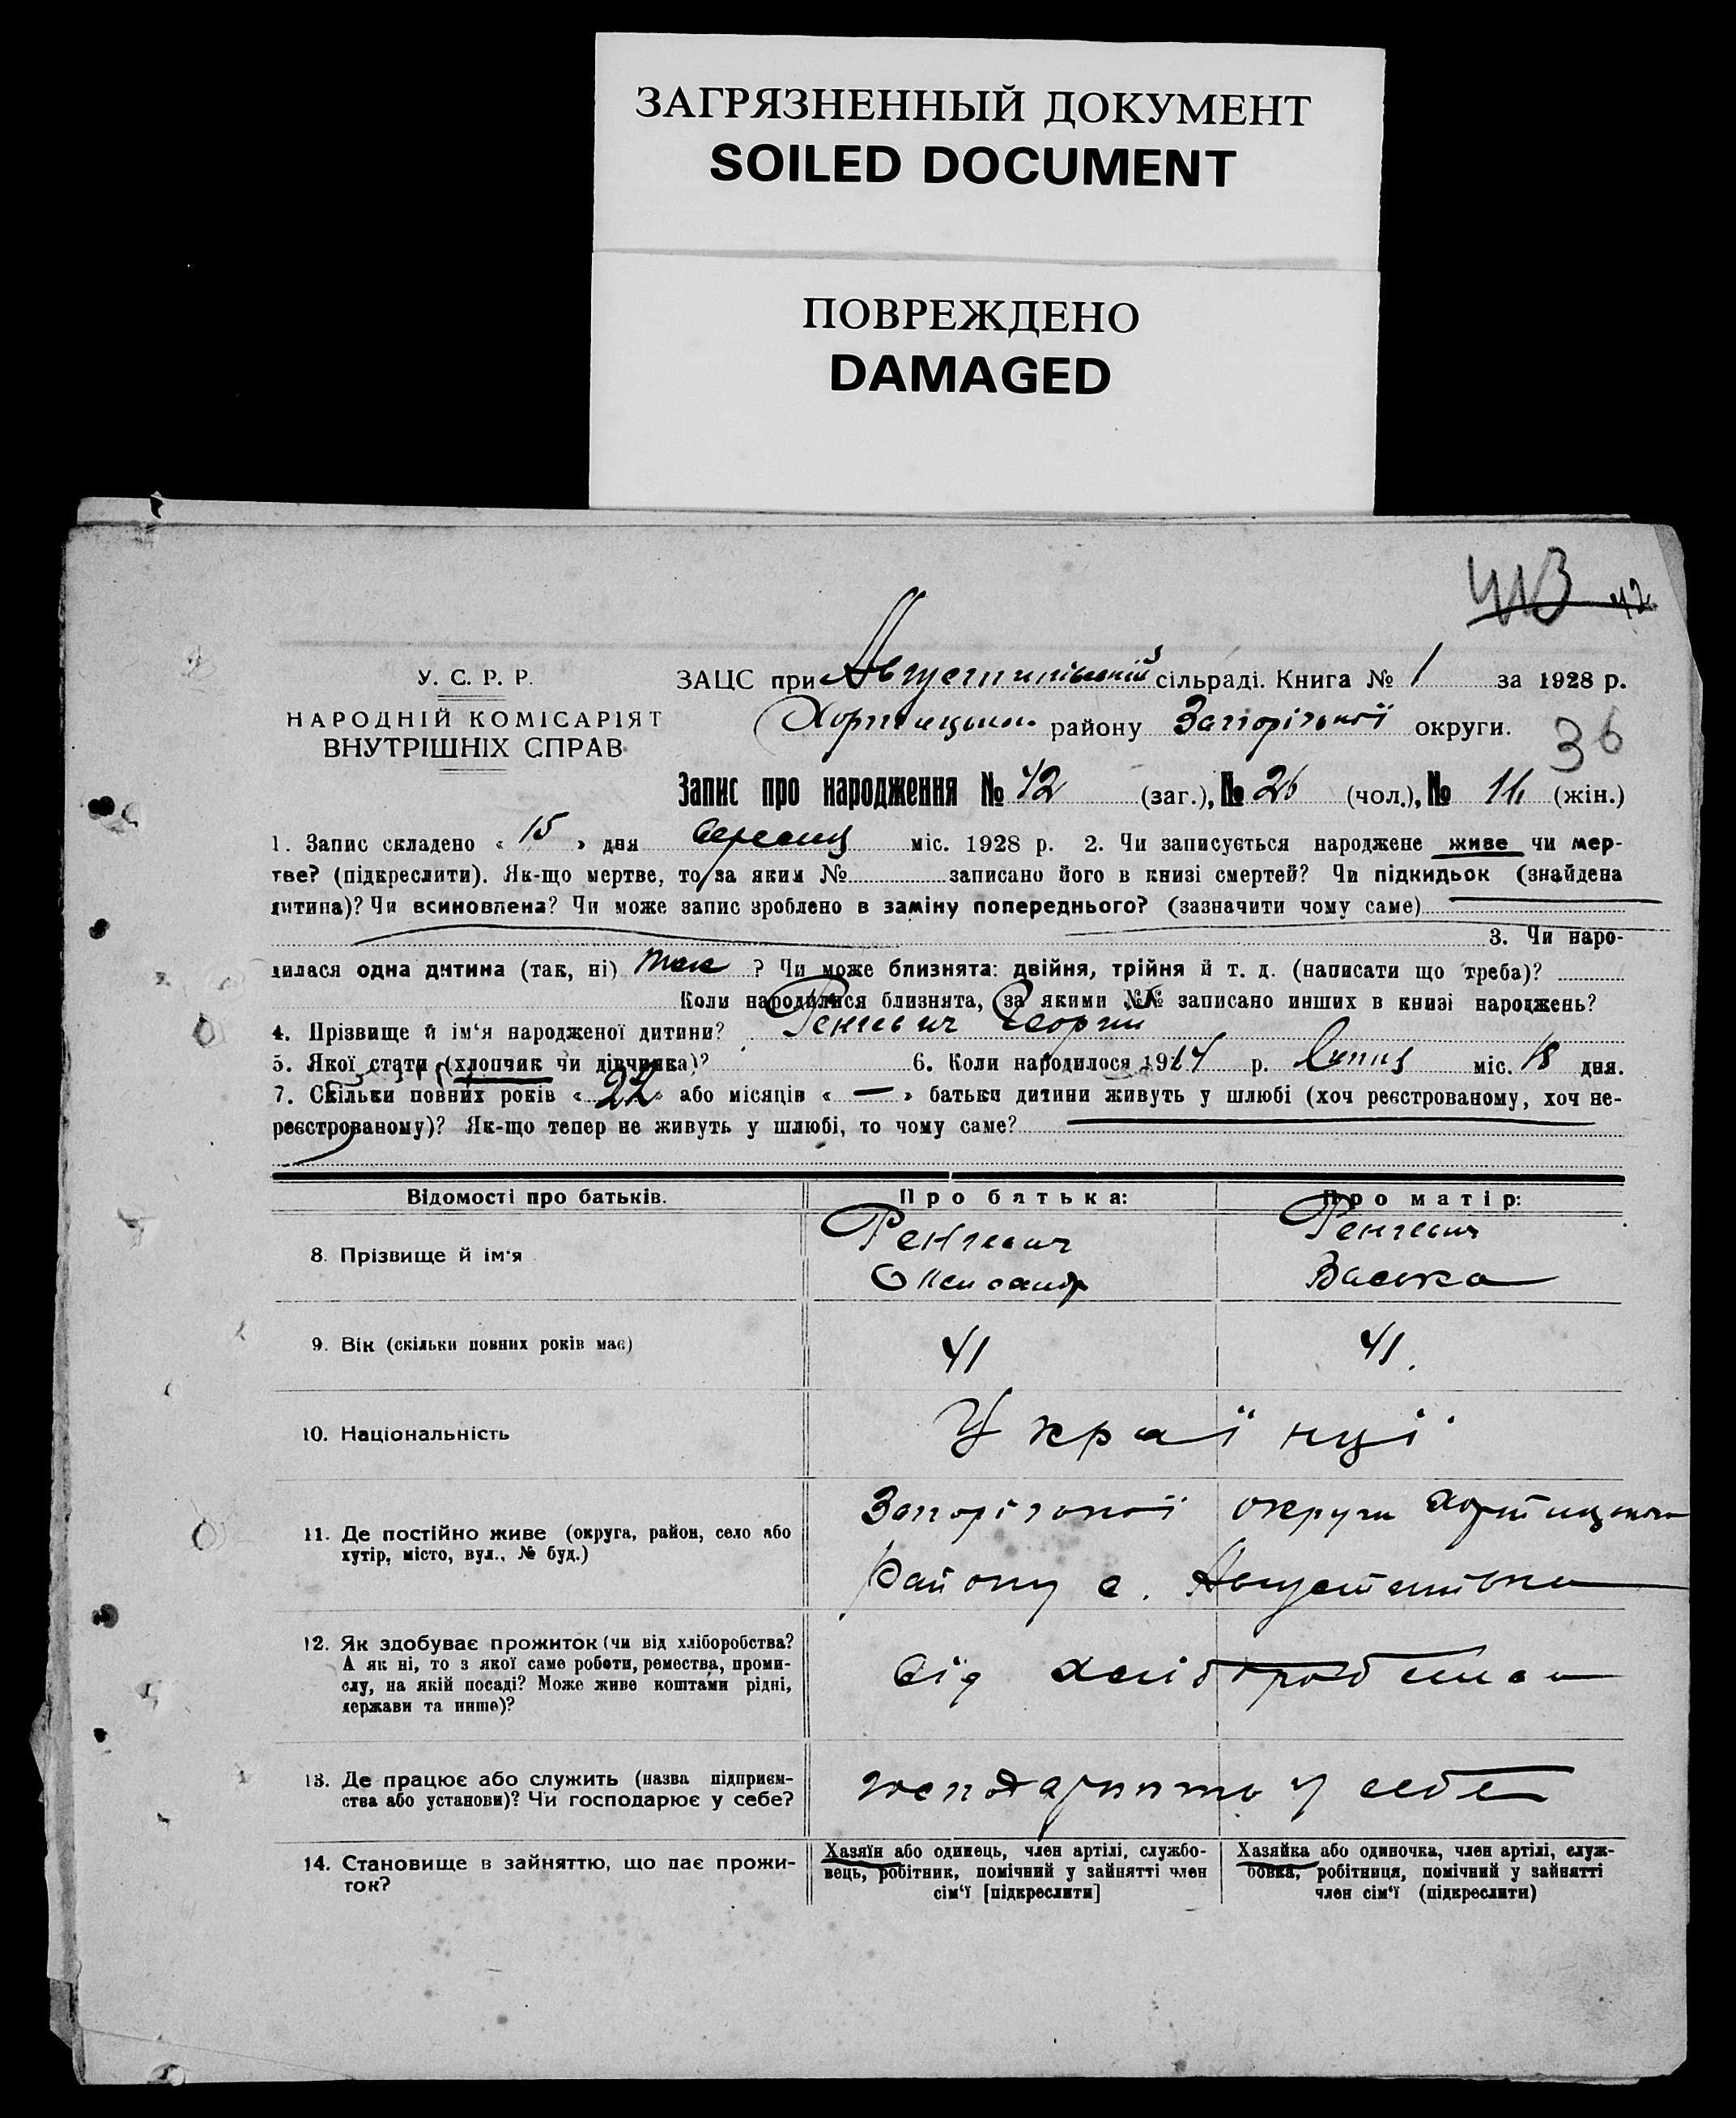 ЗАГРЯЗНЕННЫЙ ДОКУМЕНТ
SOILED DOCUMENT
ПОВРЕЖДЕНО
DAMAGED
413 42
У. С. Р. Р.
НАРОДНІЙ КОМІСАРІЯТ
ВНУТРІШНІХ СПРАВ
ЗАЦС при Августинівській сільраді. Книга № 1 за 1928 р.
Хортицьк. району Запорізької округи.
36
Запис про народження № 42 (заг.), № 26 (чол.), № 16 (жін.)
1. Запис складено « 15 » дня міс. 1928 р. 2. Чи записується народжене живе чи мер-
тве? (підкреслити). Як-що мертве, то за яким № записано його в книзі смертей? Чи підкидьок (знайдена
дитина)? Чи всиновлена? Чи може запис зроблено в заміну попереднього? (зазначити чому саме)
3. Чи наро-
дилася одна дитина (так, ні) так ? Чи може близнята: двійня, трійня й т. д. (написати що треба)?
Коли народилися близнята, за якими №№ записано инших в книзі народжень?
4. Прізвище й ім‘я народженої дитини? Ренгевич Георгий
5. Якої стати (хлопчик чи дівчинка)? 6. Коли народилося 1914 р. Липня міс. 18 дня.
7. Скільки повних років « 22 » або місяців « — » батьки дитини живуть у шлюбі (хоч реєстрованому, хоч не-
реєстрованому)? Як-що тепер не живуть у шлюбі, то чому саме?
Відомості про батьків. Про батька: Про матір:
8. Прізвище й ім‘я Ренгевич Олександр Ренгевич Васька
9. Вік (скільки повних років має) 41 41.
10. Національність Українці
11. Де постійно живе (округа, район, село або
хутір, місто, вул., № буд.)
Запорізької округи Хортицького
Району с. Августинівка
12. Як здобуває прожиток (чи від хліборобства?
А як ні, то з якої саме роботи, ремества, проми-
слу, на якій посаді? Може живе коштами рідні,
держави та инше)?
Від хліборобства
13. Де працює або служить (назва підприєм-
ства або установи)? Чи господарює у себе?
у себе
14. Становище в зайняттю, що дає прожи-
ток?
Хазяїн або одинець, член артілі, службо-
вець, робітник, помічний у зайнятті член
сім‘ї [підкреслити]
Хазяйка або одиночка, член артілі, служ-
бовка, робітниця, помічний у зайнятті
член сім‘ї (підкреслити)